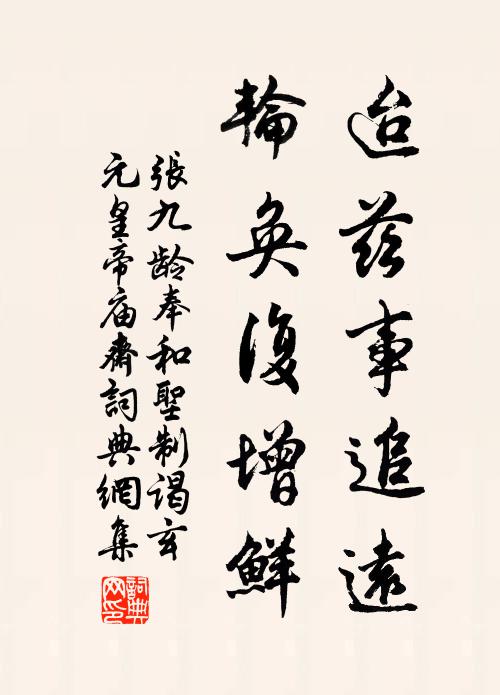 迨茲事追遠
輪奐復增鮮
張九齡奉和聖制謁玄
元皇帝庙齋詞典網集
詞典网印